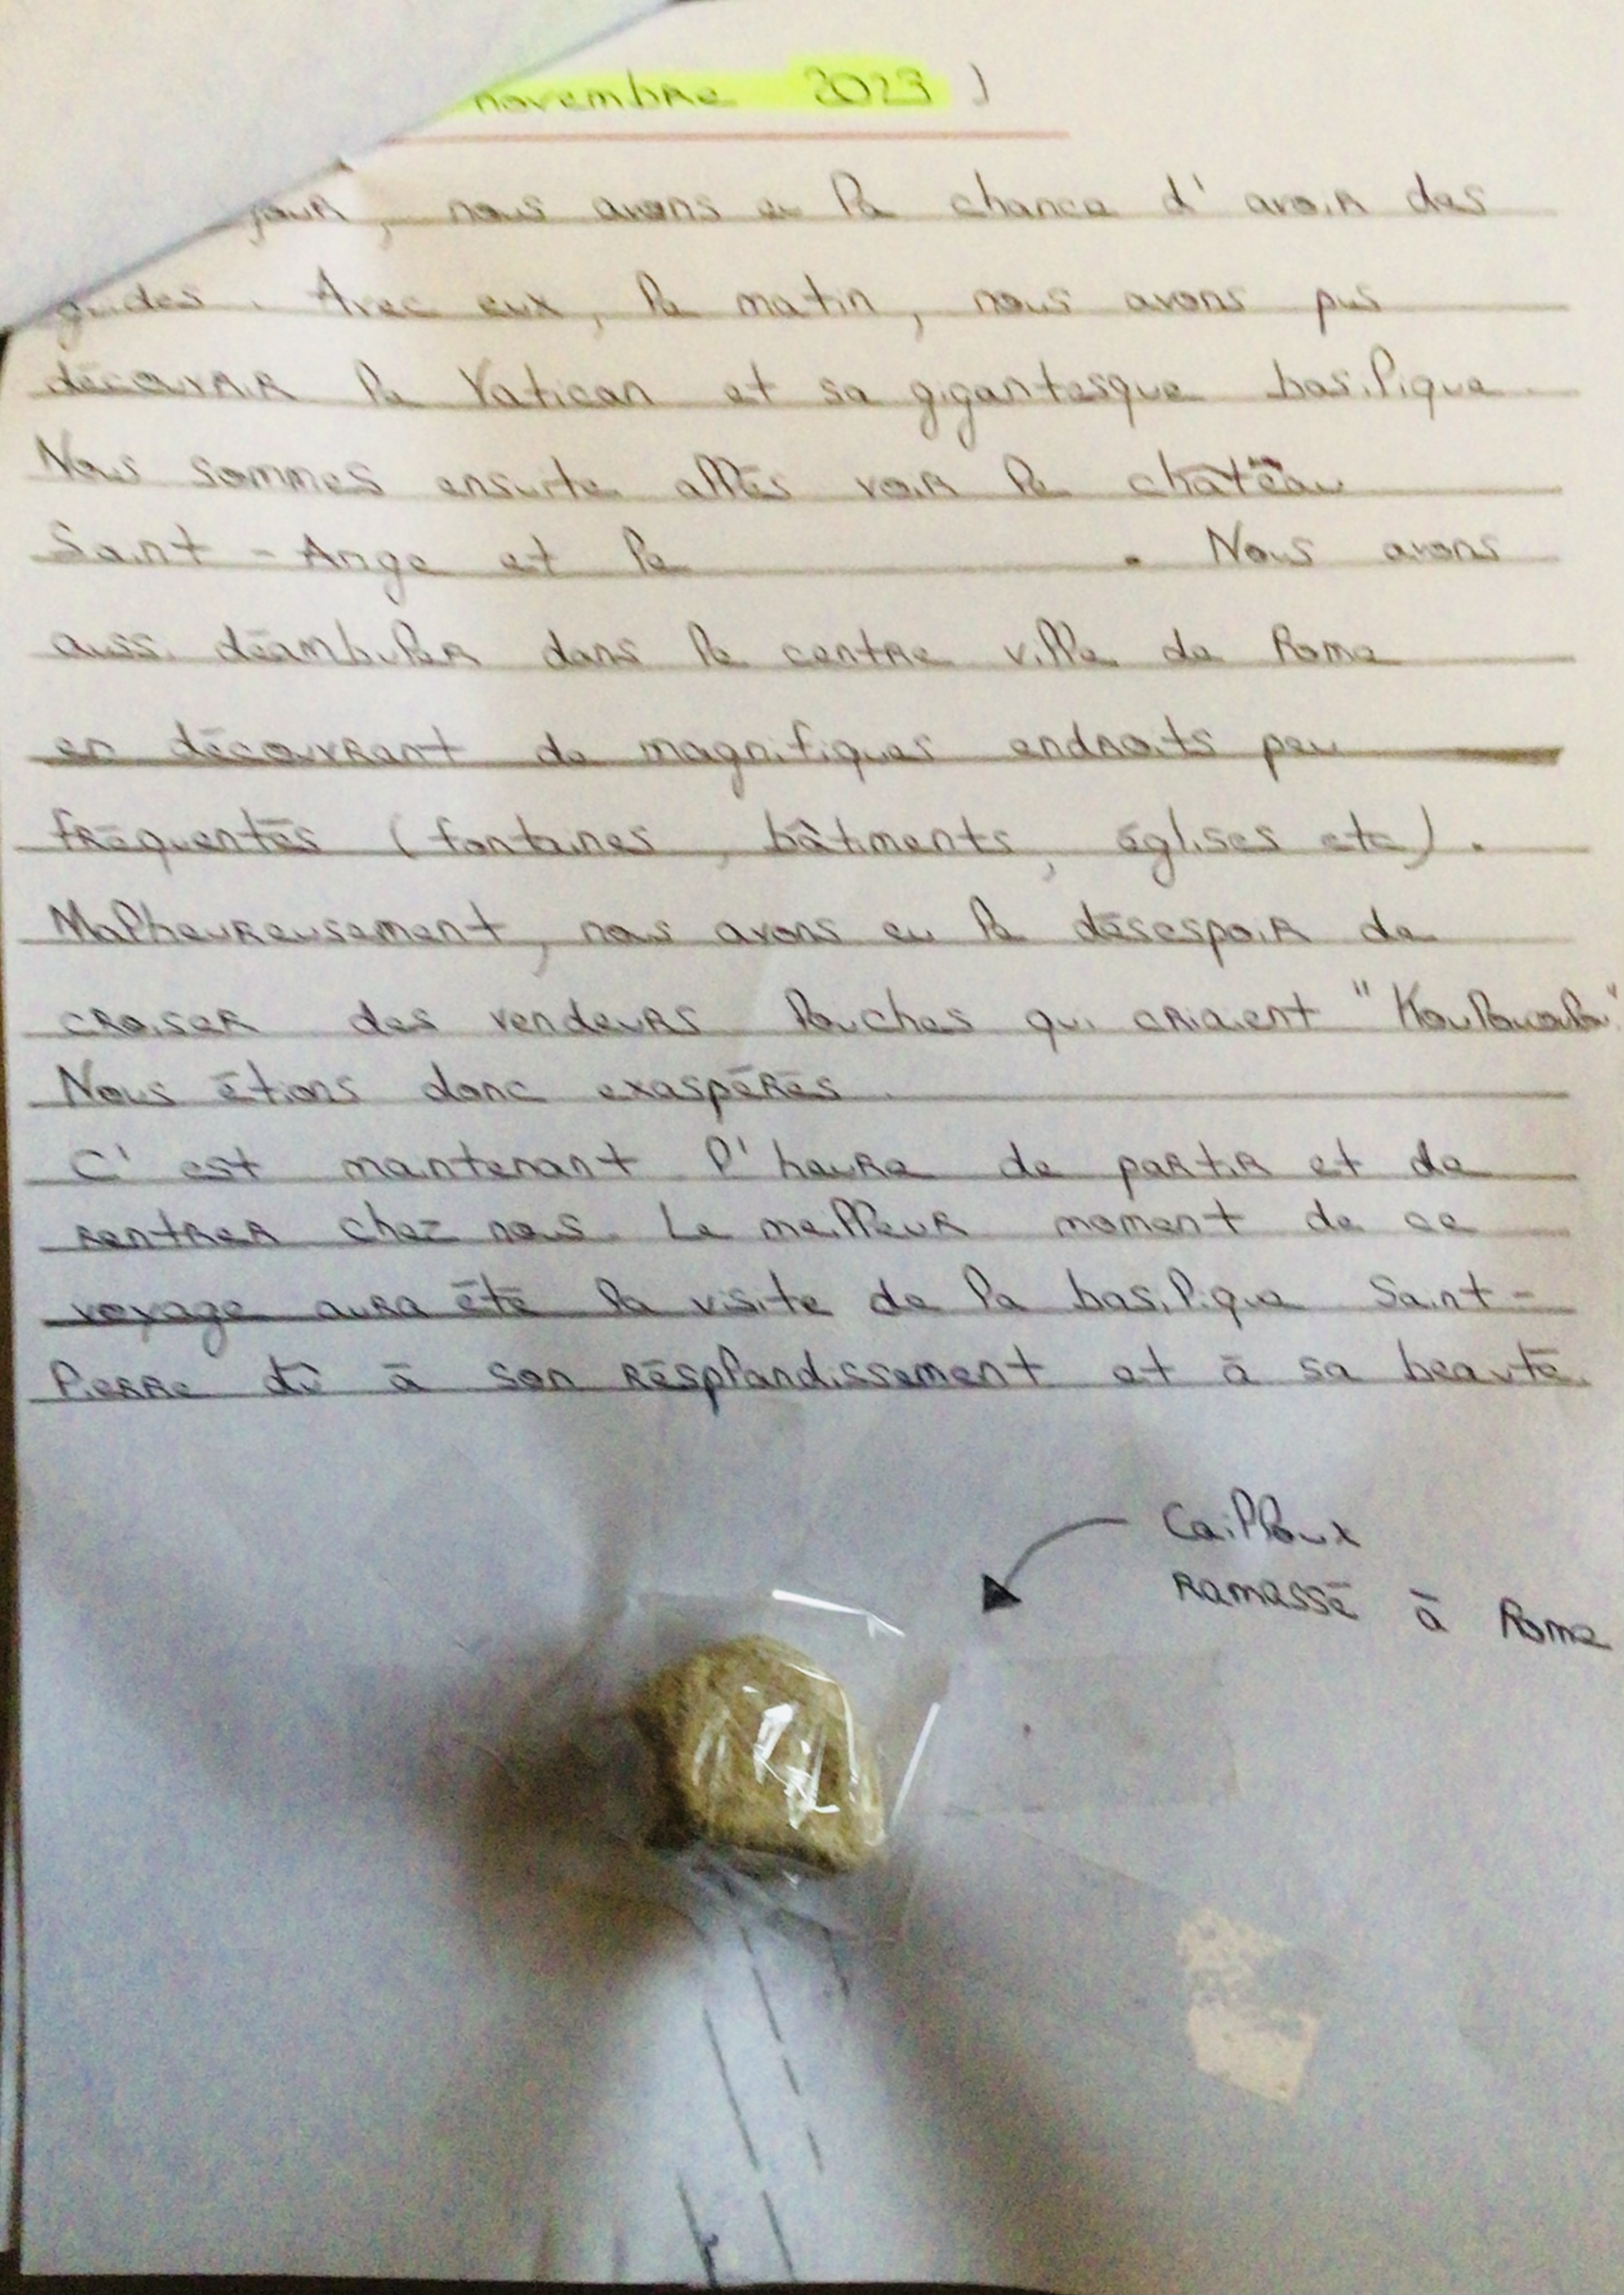 novembre 2023 )
jour, nous avons eu la chance d'avoir des
guides. Avec eux, le matin, nous avons pus
découvrir le Vatican et sa gigantesque basilique.
Nous sommes ensuite allés voir le château
Saint-Ange et le . Nous avons
aussi déambuler dans le centre ville de Rome
en découvrant de magnifiques endroits peu
fréquentés (fontaines, bâtiments, églises etc).
Malheureusement, nous avons eu le désespoir de
croiser des vendeurs louches qui criaient
Nous étions donc exaspérés.
C'est maintenant l'heure de partir et de
rentrer chez nous. Le meilleur moment de ce
voyage aura été la visite de la basilique Saint-
Pierre dû à son résplandissement et à sa beauté.
Cailloux
ramassé à Rome